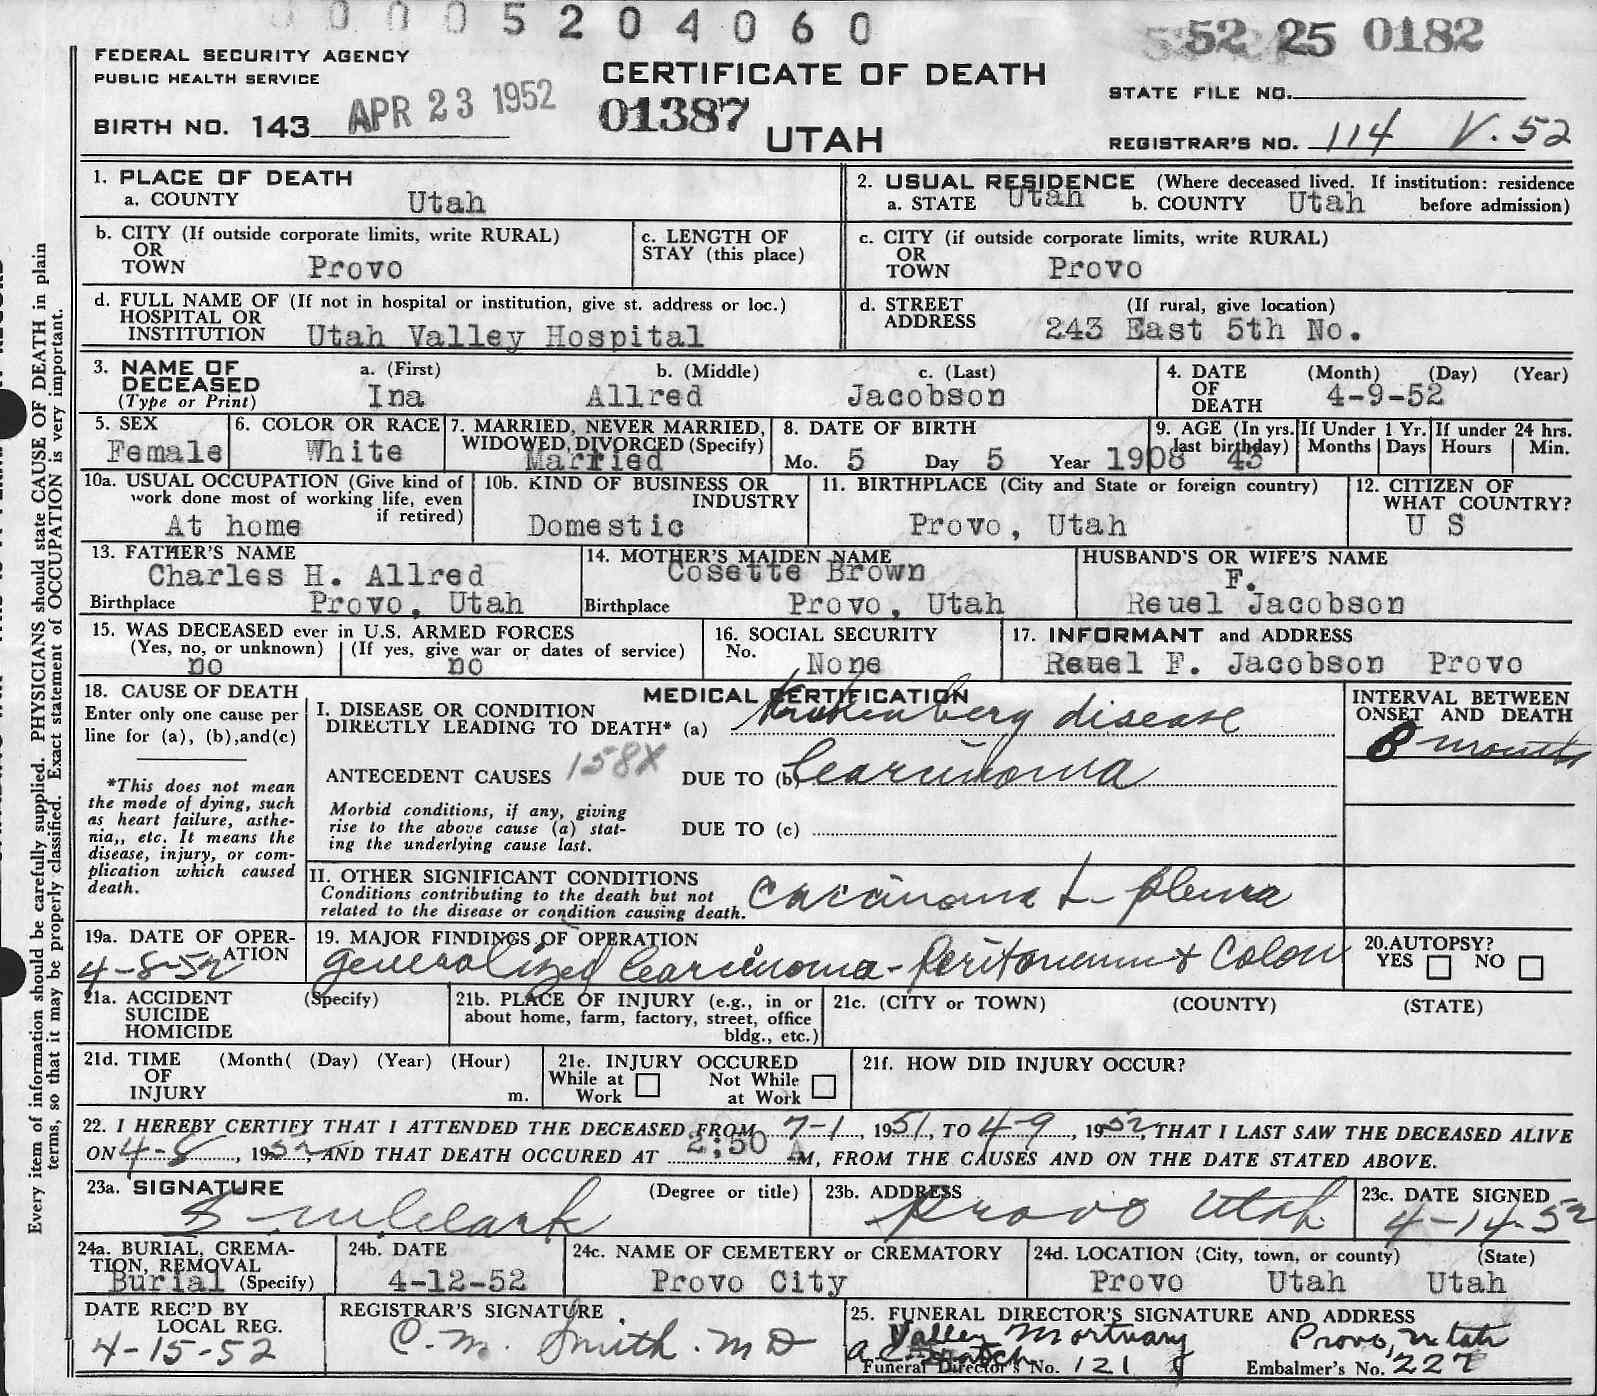 0 0 0 5 2 0 4 0 6 0
52 25 0182
FEDERAL SECURITY AGENCY
PUBLIC HEALTH SERVICE
CERTIFICATE OF DEATH
STATE FILE NO.
BIRTH NO. 143 APR 23 1952
01387
UTAH
REGISTRAR'S NO. 114 V. 52
1. PLACE OF DEATH
a. COUNTY Utah
2. USUAL RESIDENCE (Where deceased lived. If institution: residence
a. STATE Utah b. COUNTY Utah before admission)
b. CITY (If outside corporate limits, write RURAL)
OR
TOWN Provo
c. LENGTH OF
STAY (this place)
c. CITY (if outside corporate limits, write RURAL)
OR
TOWN Provo
d. FULL NAME OF (If not in hospital or institution, give st. address or loc.)
HOSPITAL OR
INSTITUTION Utah Valley Hospital
d. STREET (If rural, give location)
ADDRESS 243 East 5th No.
3. NAME OF a. (First) b. (Middle) c. (Last)
DECEASED
(Type or Print) Ina Allred Jacobson
4. DATE (Month) (Day) (Year)
OF
DEATH 4-9-52
5. SEX
Female
6. COLOR OR RACE
White
7. MARRIED, NEVER MARRIED,
WIDOWED, DIVORCED (Specify)
Married
8. DATE OF BIRTH
Mo. 5 Day 5 Year 1908
9. AGE (In yrs.
last birthday) 43
If Under 1 Yr.
Months Days
If under 24 hrs.
Hours Min.
10a. USUAL OCCUPATION (Give kind of
work done most of working life, even
if retired)
At home
10b. KIND OF BUSINESS OR
INDUSTRY
Domestic
11. BIRTHPLACE (City and State or foreign country)
Provo, Utah
12. CITIZEN OF
WHAT COUNTRY?
U S
13. FATHER'S NAME
Charles H. Allred
Birthplace Provo, Utah
14. MOTHER'S MAIDEN NAME
Cosette Brown
Birthplace Provo, Utah
HUSBAND'S OR WIFE'S NAME
F.
Reuel Jacobson
15. WAS DECEASED ever in U.S. ARMED FORCES
(Yes, no, or unknown) (If yes, give war or dates of service)
no no
16. SOCIAL SECURITY
No. None
17. INFORMANT and ADDRESS
Reuel F. Jacobson Provo
18. CAUSE OF DEATH
Enter only one cause per
line for (a), (b),and(c)
*This does not mean
the mode of dying, such
as heart failure, asthe-
nia,, etc. It means the
disease, injury, or com-
plication which caused
death.
MEDICAL CERTIFICATION
I. DISEASE OR CONDITION
DIRECTLY LEADING TO DEATH* (a) Krukenberg disease
ANTECEDENT CAUSES 158X DUE TO (b) Carcinoma
Morbid conditions, if any, giving
rise to the above cause (a) stat-
ing the underlying cause last.
DUE TO (c)
INTERVAL BETWEEN
ONSET AND DEATH
8 months
II. OTHER SIGNIFICANT CONDITIONS
Conditions contributing to the death but not
related to the disease or condition causing death.
Carcinoma L- pleura
19a. DATE OF OPER-
ATION
4-8-52
19. MAJOR FINDINGS OF OPERATION
Generalized Carcinoma - Peritoneum & Colon
20.AUTOPSY?
YES NO
21a. ACCIDENT (Specify)
SUICIDE
HOMICIDE
21b. PLACE OF INJURY (e.g., in or
about home, farm, factory, street, office
bldg., etc.)
21c. (CITY or TOWN) (COUNTY) (STATE)
21d. TIME (Month( (Day) (Year) (Hour)
OF
INJURY m.
21e. INJURY OCCURED
While at Not While
Work at Work
21f. HOW DID INJURY OCCUR?
22. I HEREBY CERTIFY THAT I ATTENDED THE DECEASED FROM 7-1, 1951, TO 4-9, 1952, THAT I LAST SAW THE DECEASED ALIVE
ON 4-8, 1952, AND THAT DEATH OCCURED AT 2:50 A M, FROM THE CAUSES AND ON THE DATE STATED ABOVE.
23a. SIGNATURE (Degree or title)
Clark
23b. ADDRESS
Provo Utah
23c. DATE SIGNED
4-14-52
24a. BURIAL, CREMA-
TION, REMOVAL
Burial (Specify)
24b. DATE
4-12-52
24c. NAME OF CEMETERY or CREMATORY
Provo City
24d. LOCATION (City, town, or county) (State)
Provo Utah Utah
DATE REC'D BY
LOCAL REG.
4-15-52
REGISTRAR'S SIGNATURE
C. M. Smith. M D
25. FUNERAL DIRECTOR'S SIGNATURE AND ADDRESS
Valley Mortuary Provo, Utah
Funeral Director's No. 121 Embalmer's No. 227
Every item of information should be carefully supplied. PHYSICIANS should state CAUSE OF DEATH in plain
terms, so that it may be properly classified. Exact statement of OCCUPATION is very important.